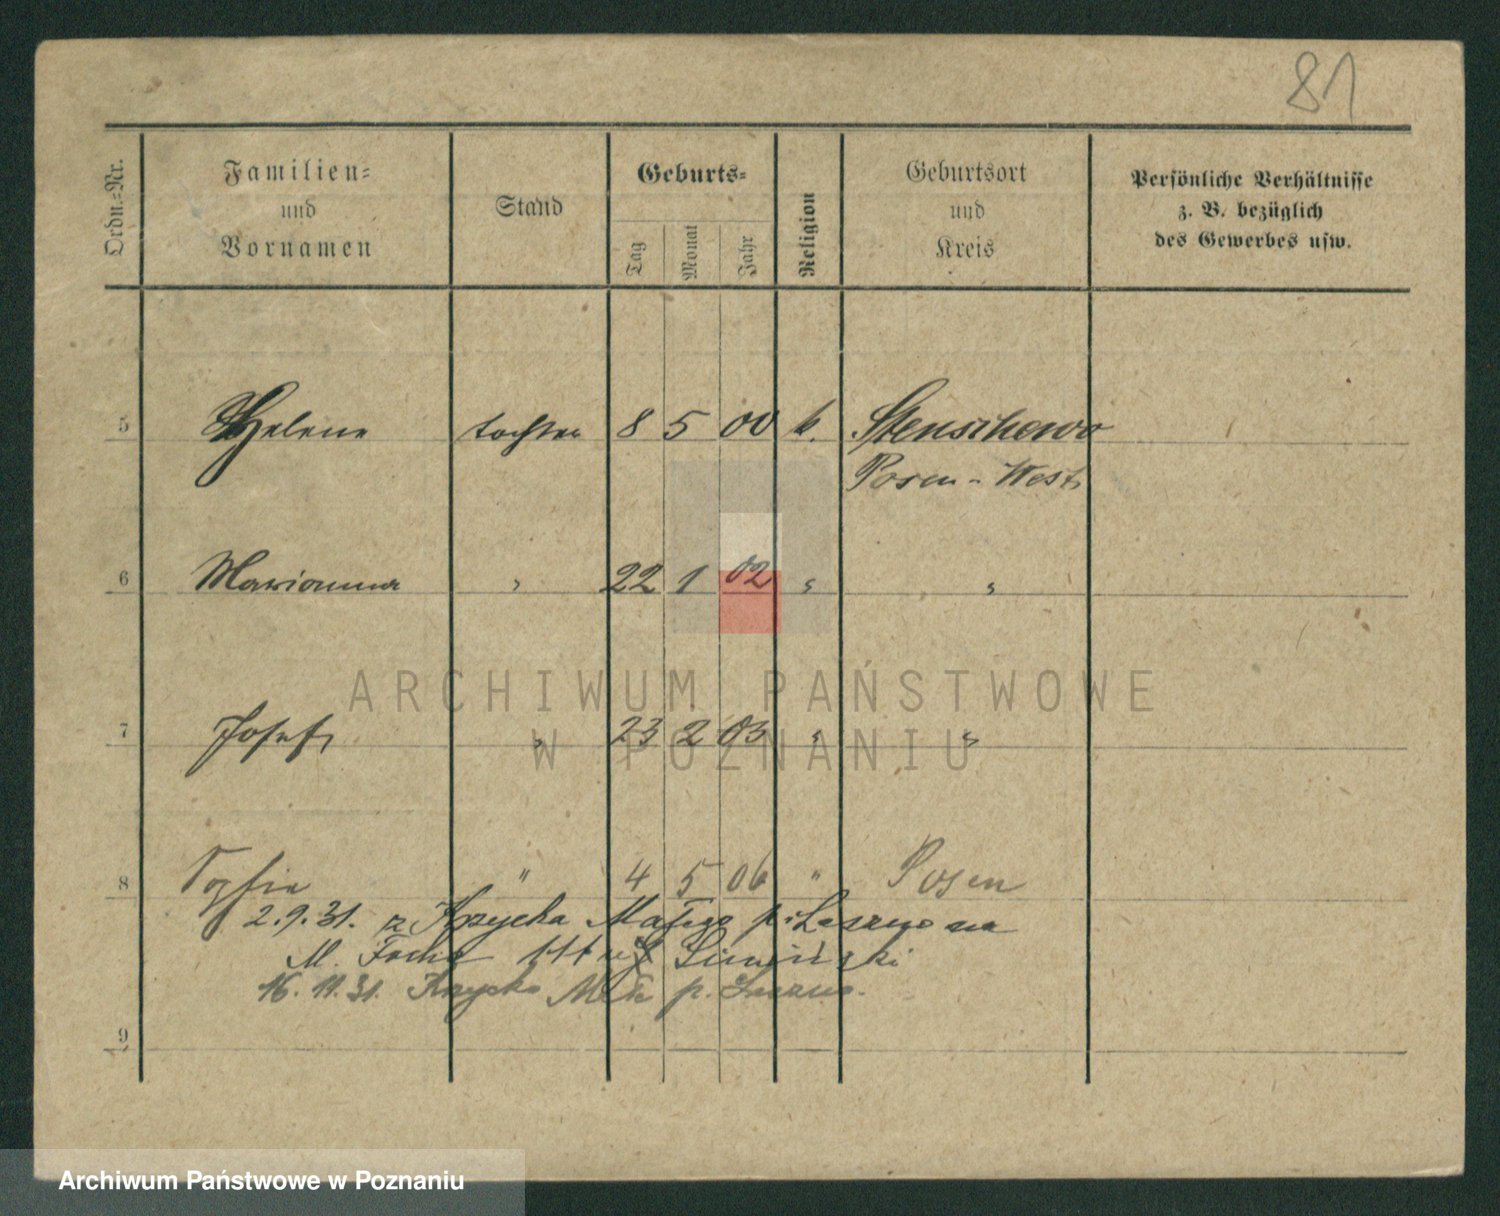 81
Ordn.=Nr.
Familien=
und
Vornamen
Stand
Geburts=
Tag
Monat
Jahr
Religion
Geburtsort
und
Kreis
Persönliche Verhältnisse
z. B. bezüglich
des Gewerbes usw.
5 Helene tochter 8 5 00 k. Stenschewo
Posen - West
6 Marianna " 22 1 02 " "
7 Josef " 23 2 03 " "
8 Sophie " 4 5 06 " Posen
2.9.31. z Krzycka Małego p. Leszno na
M. Focha 111 u Sliwiński
16. 11. 31. Krzycko Małe p. Leszno.
9
ARCHIWUM PAŃSTWOWE
W POZNANIU
Archiwum Państwowe w Poznaniu